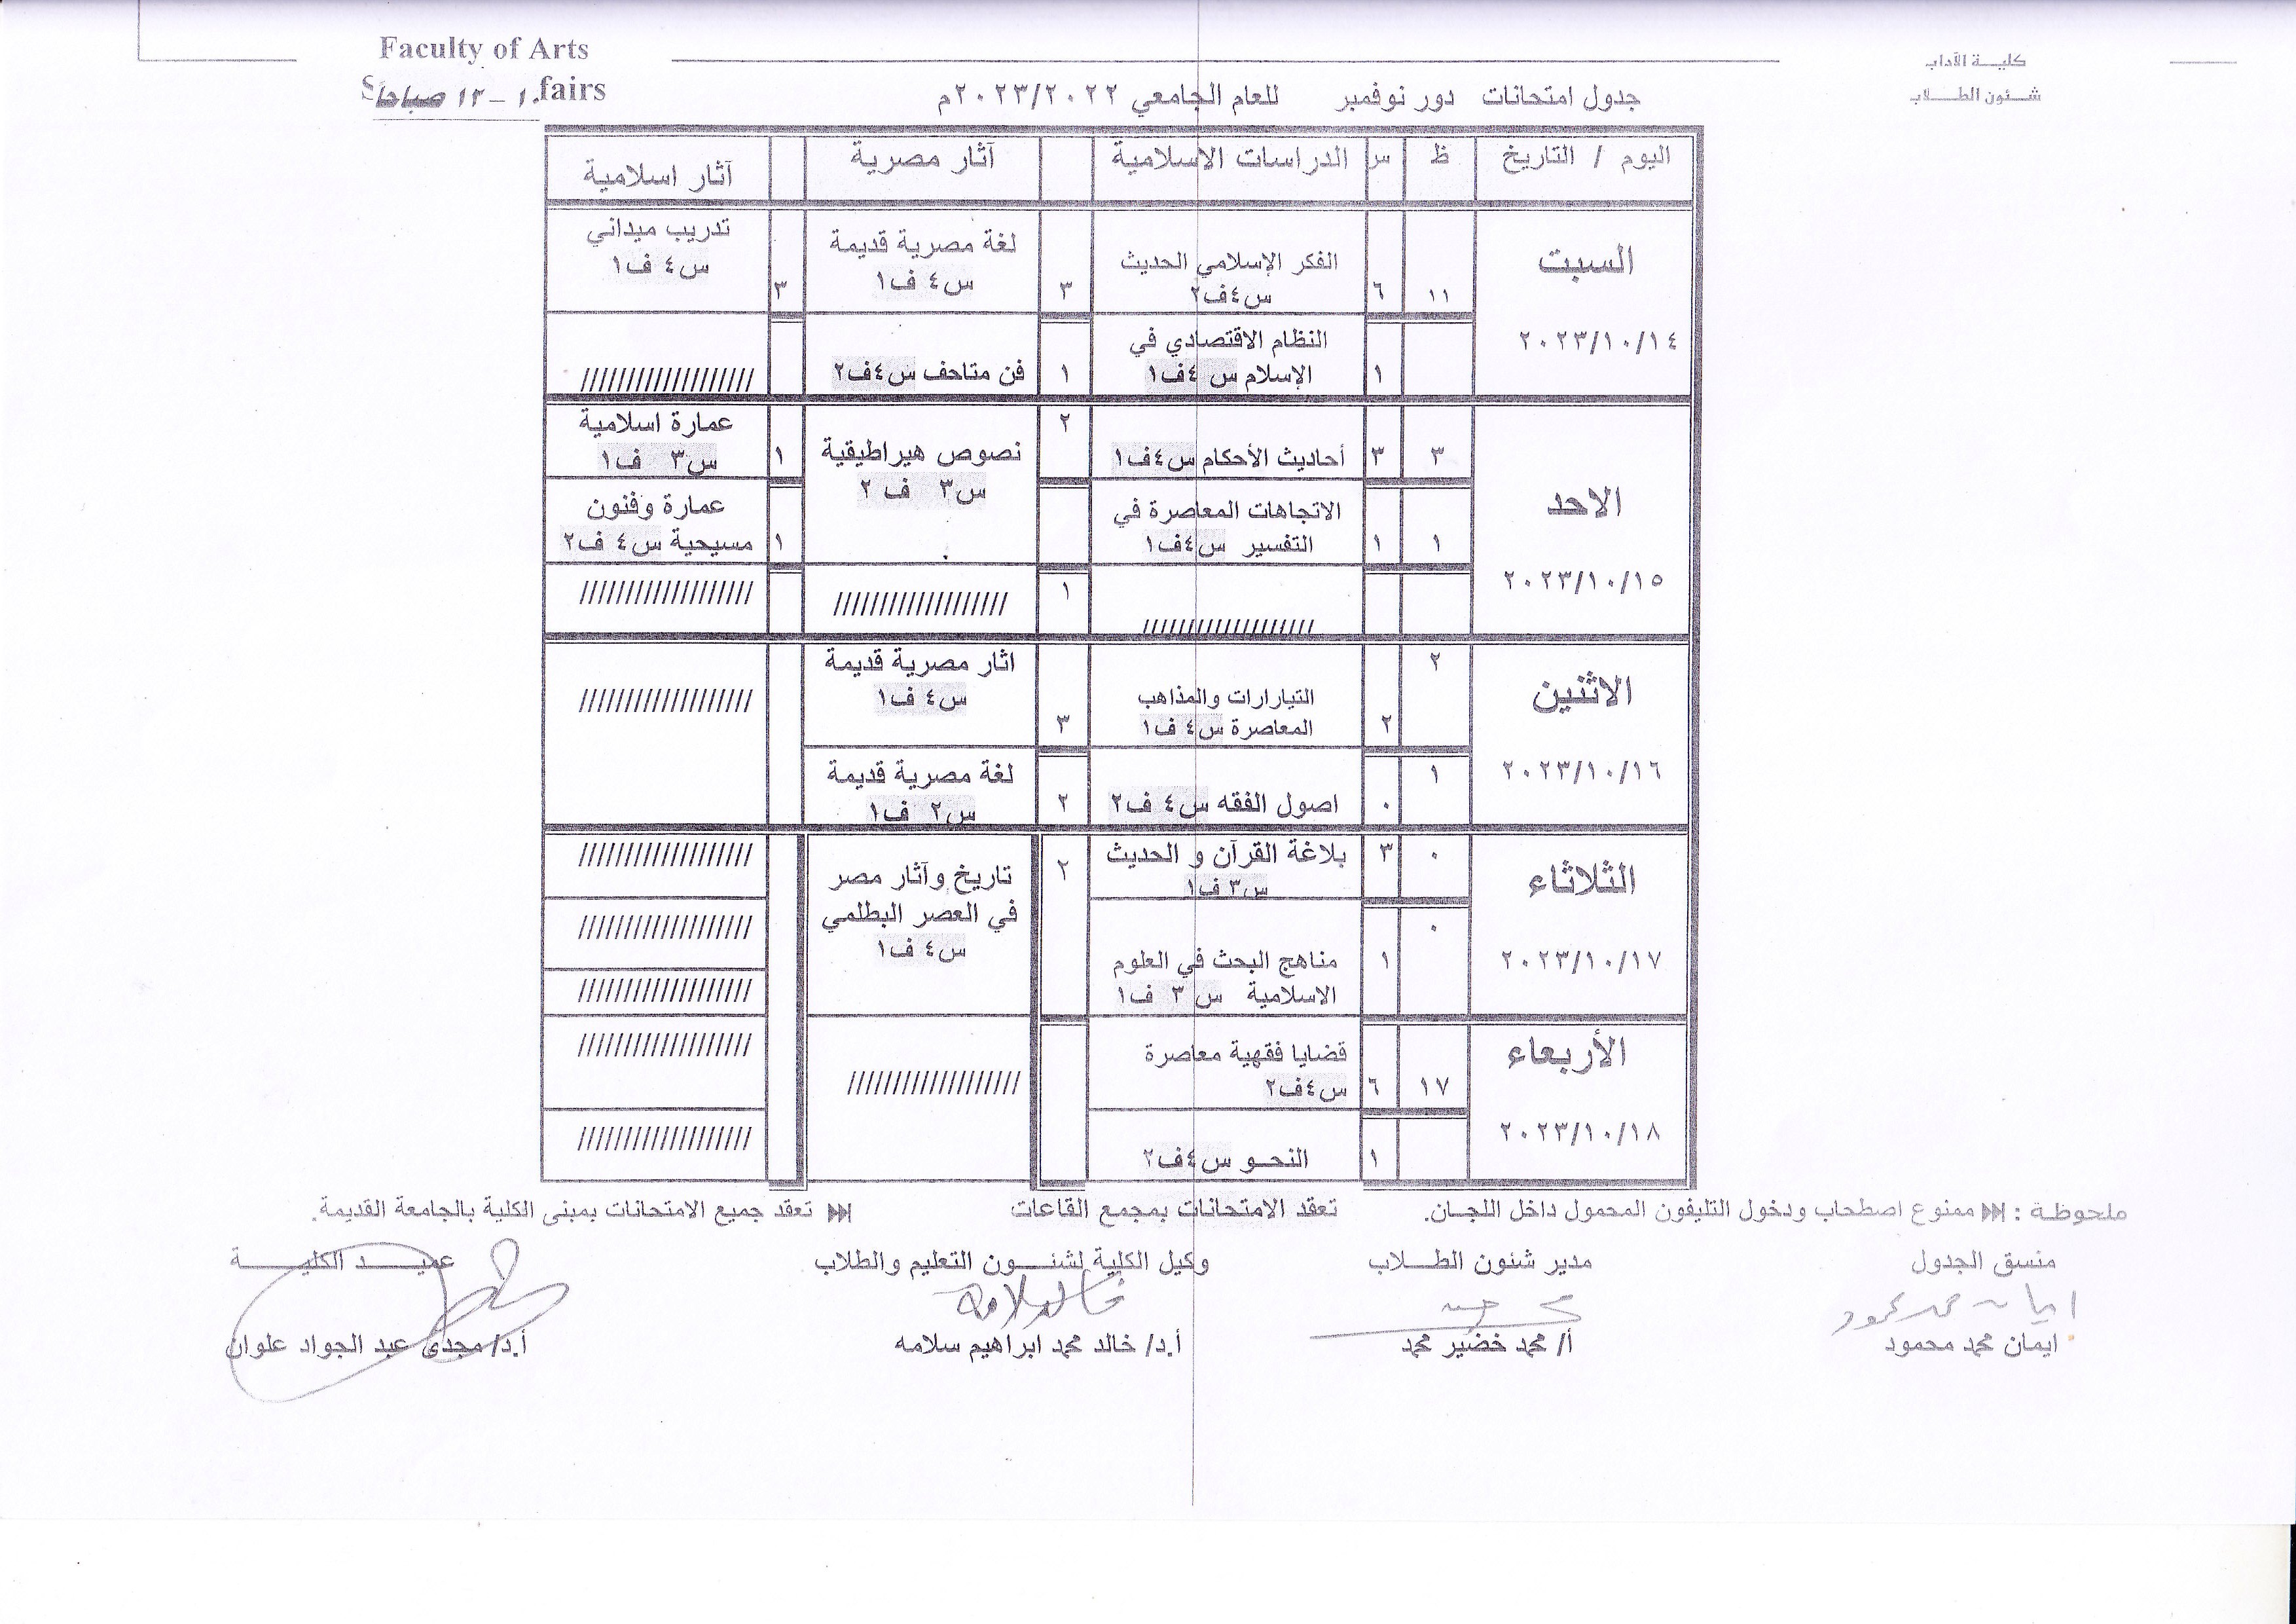 كلية الآداب
شئون الطلاب
Faculty of Arts
fairs
١٠ - ١٢ صباحا
جدول امتحانات دور نوفمبر للعام الجامعي ٢٠٢٣/٢٠٢٢م
اليوم / التاريخ ظ س الدراسات الاسلامية آثار مصرية آثار اسلامية
السبت
٢٠٢٣/١٠/١٤
١١ ٦
الفكر الإسلامي الحديث
س٤ف٢
٣
لغة مصرية قديمة
س٤ ف١
٣
تدريب ميداني
س٤ ف١
١
النظام الاقتصادي في
الإسلام س ٤ف١
١
فن متاحف س٤ف٢
///////////////////
الاحد
٢٠٢٣/١٠/١٥
٣ ٣
أحاديث الأحكام س٤ف١
٢
نصوص هيراطيقية
س٣ ف ٢
١
عمارة اسلامية
س٣ ف١
١ ١
الاتجاهات المعاصرة في
التفسير س٤ف١
١
عمارة وفنون
مسيحية س٤ ف٢
///////////////////
١
///////////////////
///////////////////
الاثنين
٢٠٢٣/١٠/١٦
٢ ٢
التيارارات والمذاهب
المعاصرة س٤ ف١
٣
اثار مصرية قديمة
س٤ ف١
///////////////////
١ ٠
اصول الفقه س٤ ف٢
٢
لغة مصرية قديمة
س٢ ف١
الثلاثاء
٢٠٢٣/١٠/١٧
٠ ٣
بلاغة القرآن و الحديث
س٣ ف١
٢
تاريخ وآثار مصر
في العصر البطلمي
س٤ ف١
///////////////////
///////////////////
٠ ١
مناهج البحث في العلوم
الاسلامية س ٣ ف١
///////////////////
الأربعاء
٢٠٢٣/١٠/١٨
١٧ ٦
قضايا فقهية معاصرة
س٤ف٢
///////////////////
///////////////////
١
النحو س٤ف٢
///////////////////
ملحوظة : ممنوع اصطحاب ودخول التليفون المحمول داخل اللجان. تعقد الامتحانات بمجمع القاعات تعقد جميع الامتحانات بمبنى الكلية بالجامعة القديمة.
منسق الجدول مدير شئون الطلاب وكيل الكلية لشئون التعليم والطلاب عميد الكلية
ايمان محمد محمود أ/ محمد خضير محمد أ.د/ خالد محمد ابراهيم سلامه أ.د/ مجدى عبد الجواد علوان